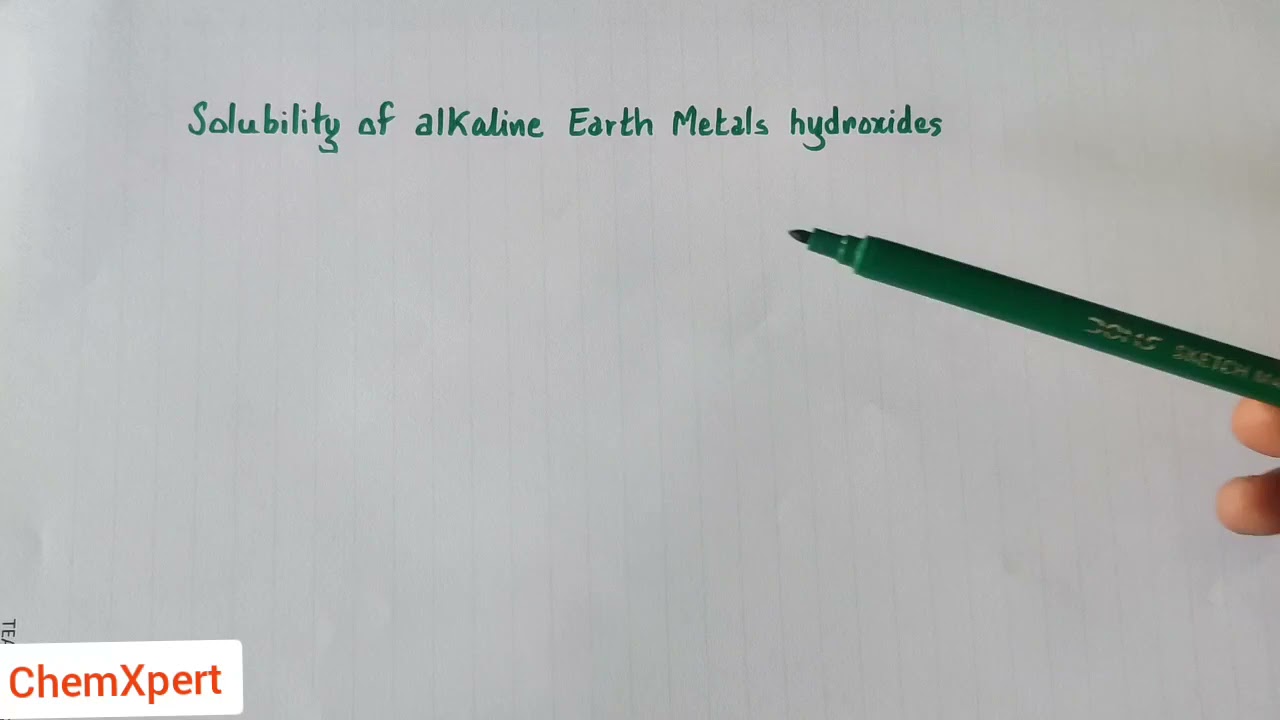 Solubility of alkaline Earth Metals hydroxides
SKETCH
TEA
ChemXpert